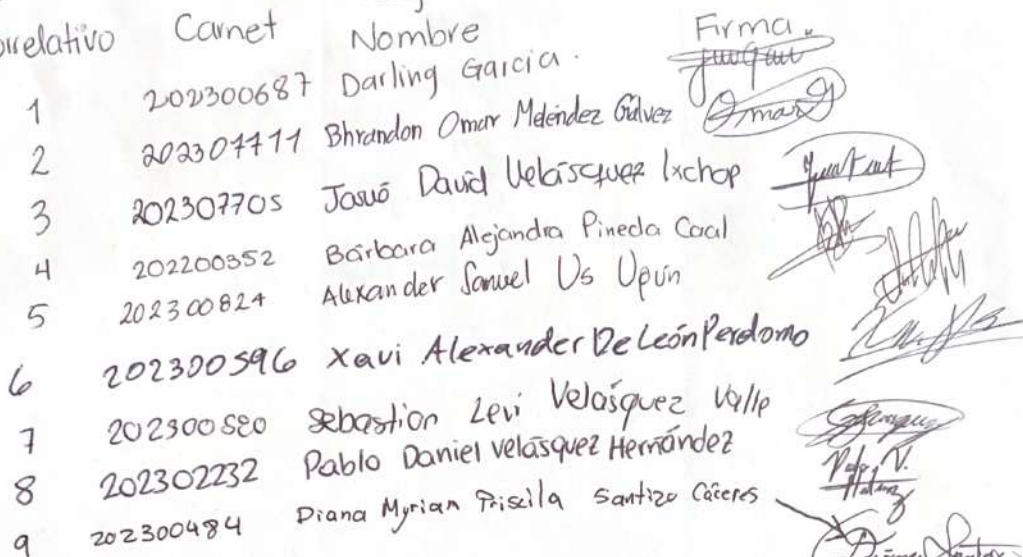 Correlativo Carnet Nombre Firma
1 202300687 Darling Garcia.
2 202301111 Bhrandon Omar Meléndez Gálvez Omar G
3 202307705 Josué David Velásquez Ixchop
4 202200352 Bárbara Alejandra Pineda Caal
5 202300824 Alexander Samuel Us Upún
6 202300596 Xavi Alexander De León Perdomo
7 202300520 Sebastian Levi Velásquez Valle
8 202302232 Pablo Daniel Velásquez Hernández
9 202300484 Diana Myrian Priscila Santizo Cáceres